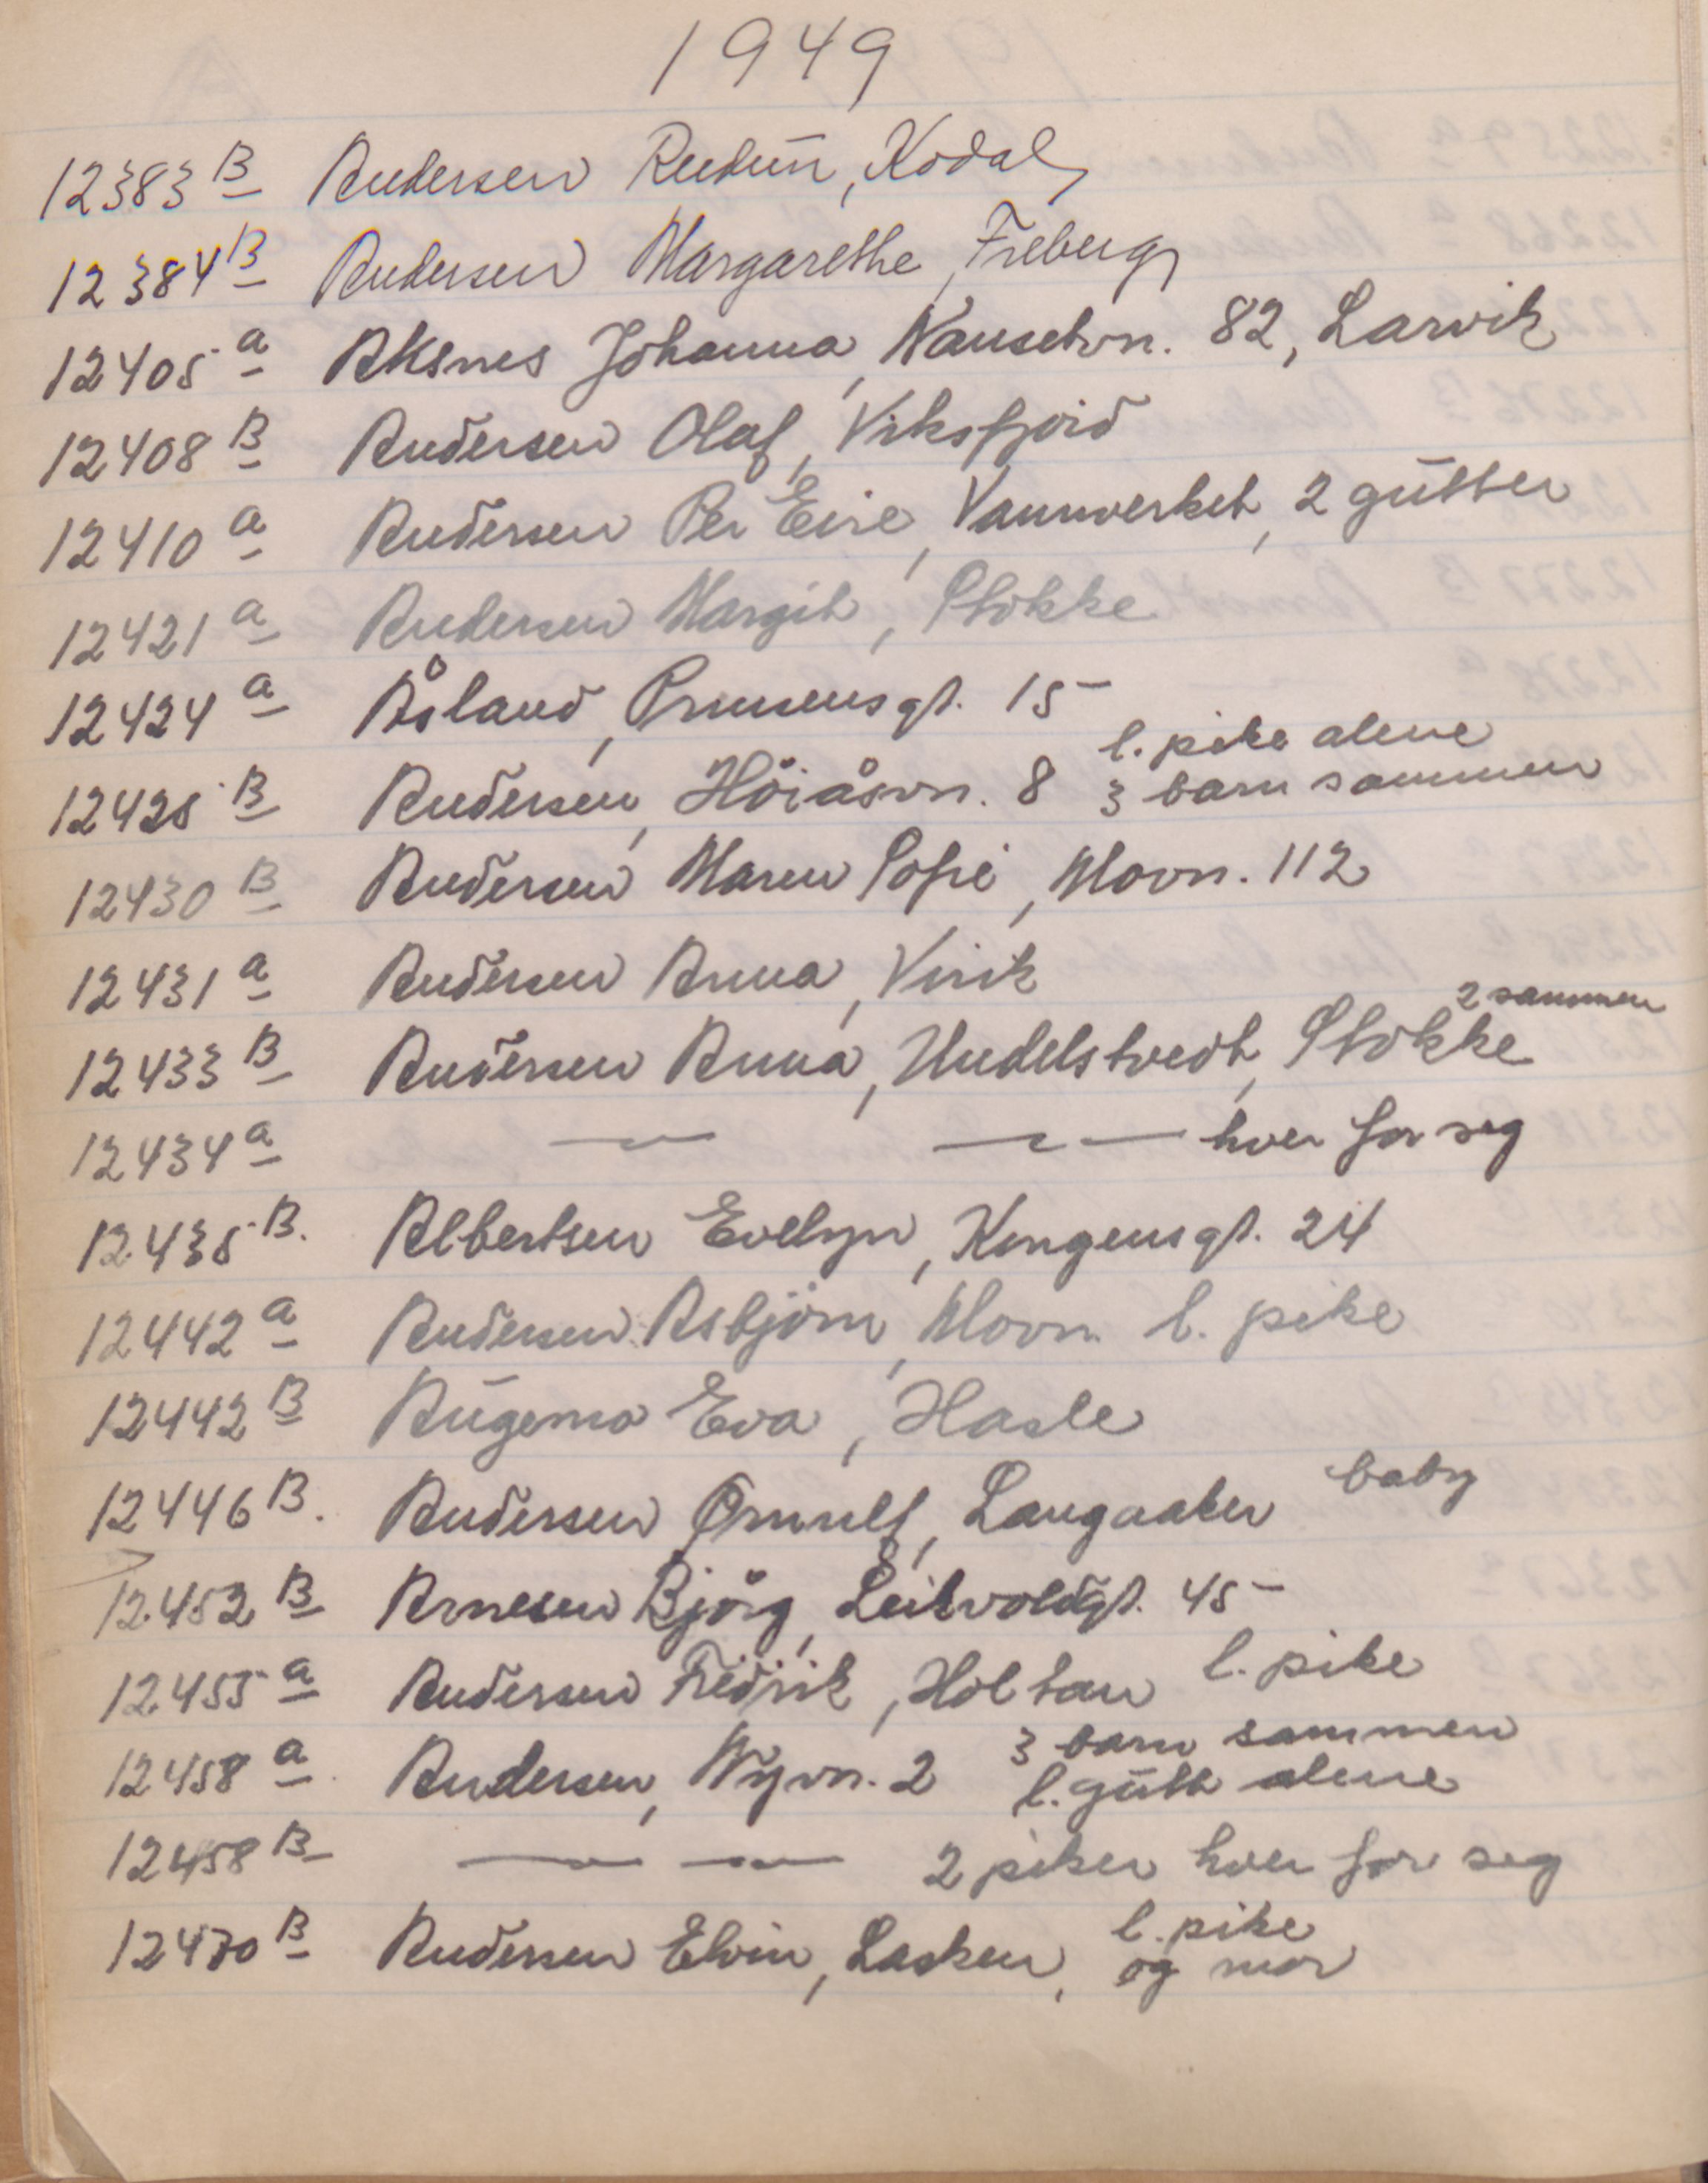 1949
12383 B Andersen Reidun, Kodal
12384 B Andersen Margarethe, Freberg
12405 a Aksnes Johanna, Nansetvn. 82, Larvik
12408 B Andersen Olaf, Viksfjord
12410 a Andersen Per Eire, Vannverket, 2 gutter
12421 a Andersen Margit, Stokke
12424 a Åsland, Prinsensgt. 15
l. pike alene
12425 B Andersen, Höiåsvn. 8 3 barn sammen
12430 B Andersen Maren Sofie, Movn. 112
12431 a Andersen Anna, Virik
2 sammen
12433 B Andersen Anna, Undelstvedt, Stokke
12434 a — — — hver for seg
12435 B. Albertsen Evelyn, Kongensgt. 24
12442 a Andersen Asbjörn, Movn. l. pike
12442 B Augemo Eva, Hasle
12446 B. Andersen Ørnulf, Langaaker baby
12452 B Arnesen Bjørg, Leitvoldgt. 45
12455 a Andersen Fredrik, Holtan l. pike
3 barn sammen
12458 a Andersen, Nyvn. 2 l. gutt alene
12458 B — — 2 piker hver for seg
l. pike
12470 B Andersen Elvin, Lasken, og mor